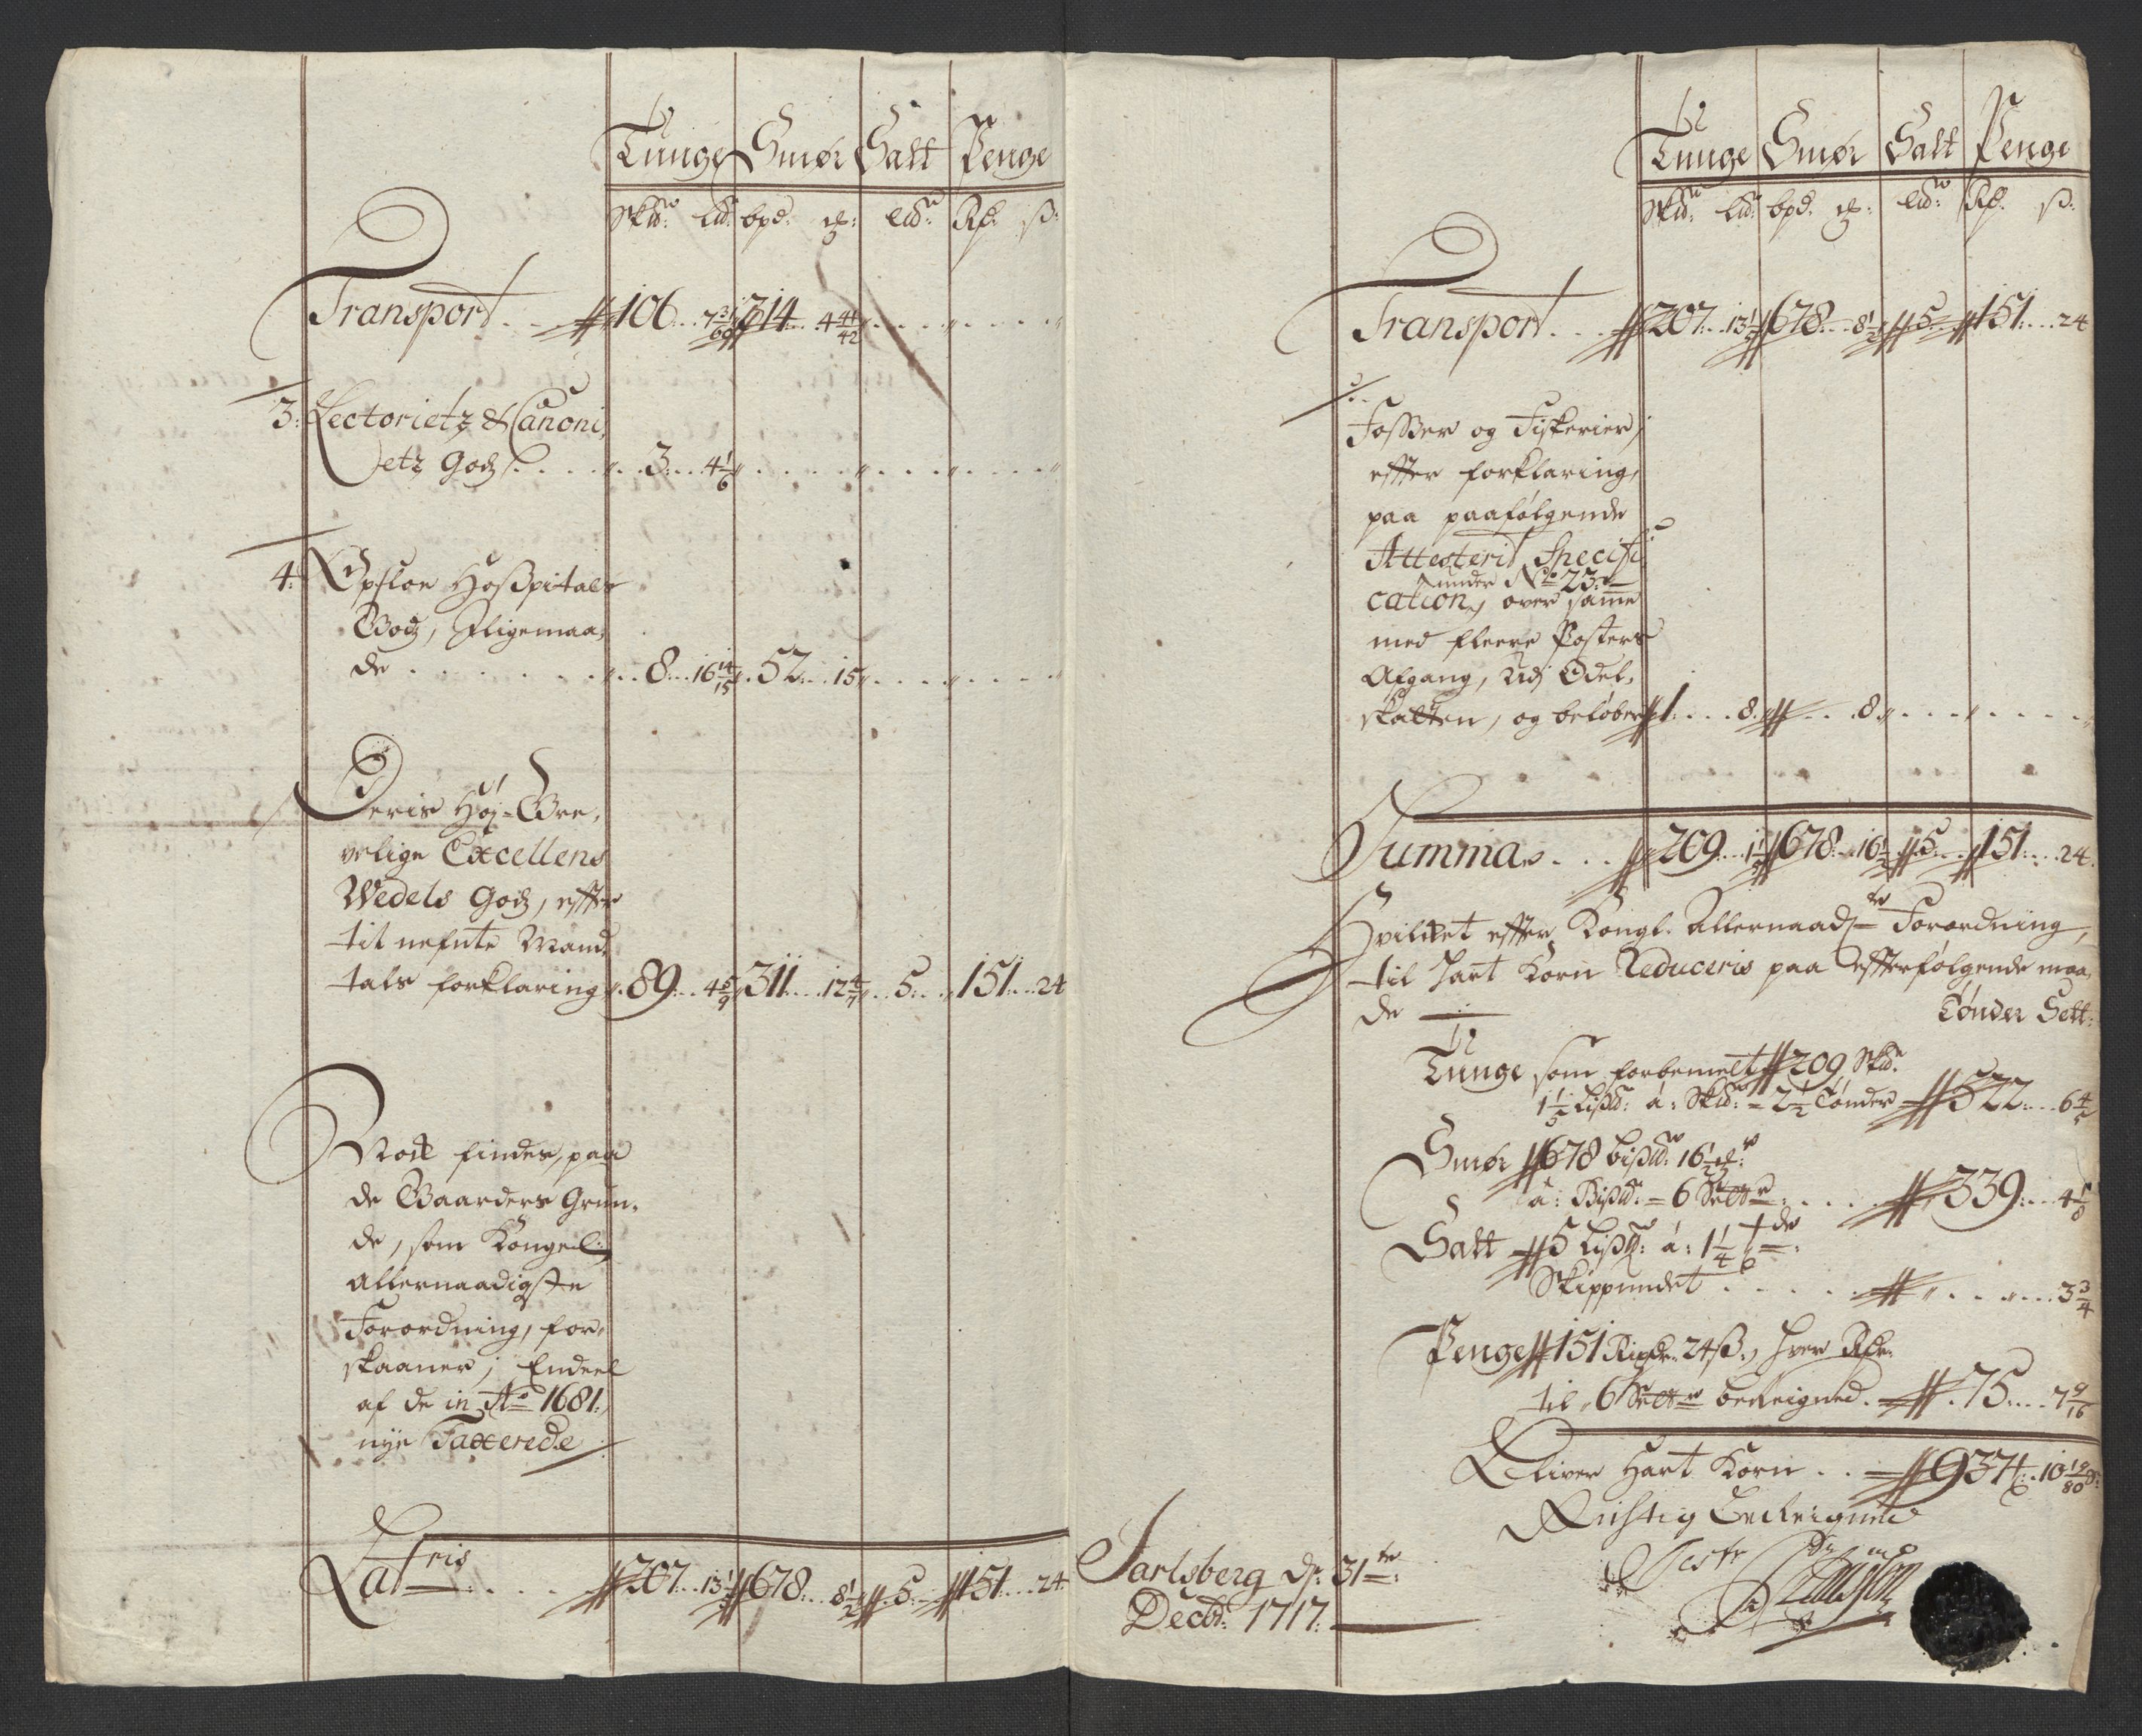 Tunge Smør Salt Penge
Skld: Ld: bpd: : Ld: Rd: ß:
Transport . . 106 . . 7 314 . . 4 41/42
3: Lectoriets & Canoni,
etz Godz . . . . 3 . . . 4 1/6
4: Opsloe Hoßpitals
Godz, Jligemaa,
de . . . . . . 8 . . 16 14/15 . 52 . . 15
Deris Høj-Gre,
velige Excellens
Wedels Godz, effter
tit nefnte Mand,
tals forklaring . 89 . . 4 5/9 311 . . 12 4/7 . . 5 . . 151 . . 24
Nok findes, paa
de Gaarders Grun,
de, som Kongel:
Allernaadigste
Forordning, for,
skaaner; Endeel
af de in Ao 1681:
nye Taxerede
Lateris . . . . 207 . . 13 1/5 678 . . 8 1/2 5 . . 151 . . 24
Tunge Smør Salt Penge
Skld: Ld: bpd. : Ld: Rd. ß:
Transport . . . 207 . . 13 1/5 678 . . 8 1/2 5 . . 151 . . 24
Foßer og Fiskerier,
effter forklaring,
paa paafølgende
Attesterit Specifi
under No 23:
cation, over samme
med fleere Posters
Afgang, udj Odel,
skatten, og beløber 1 . . . 8 . . . 8
Summa . . . 209 . . 1 1/5 678 . . 16 1/2 5 . . 151 . . 24
Hvilket effter Kongl. Allernaad: Forordning,
til Hart Korn Reduceris paa effterfølgende maa,
de
Tønder Sett:
Tunge som forbemelt 209 Skld:
1 1/5 Lißd: á: Skld: = 2 1/2 Tønder 522 . . 6 4/5
Smør 678 bißld: 16 1/2 :
á: Bißld: = 6 Sett: . . . . 339 . . 4 1/8
Salt 5 Lißd: á: 1 1/4 tde:
Skippundet . . . . . . . . 3 3/4
Penge 151 Rixdr. 24 ß:, hver Rdr.
til 6 Sett: beReigned . 75 . . . 7 9/16
Bliver Hart Korn . . 937 . . 10 19/80
Rigtig beReigned
Jarlsberg d: 31te:
Decbr: 1717.
Teste